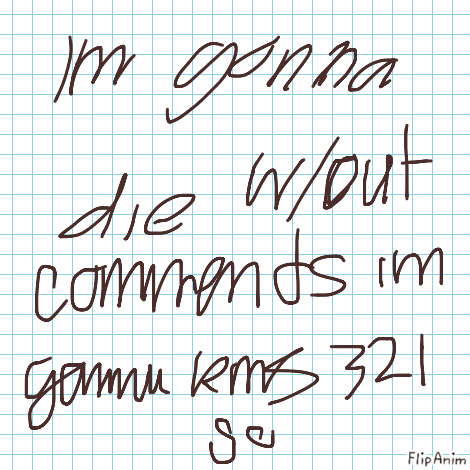 Im gonna
die w/out
comments im
gonnu kms 321
so
FlipAnim